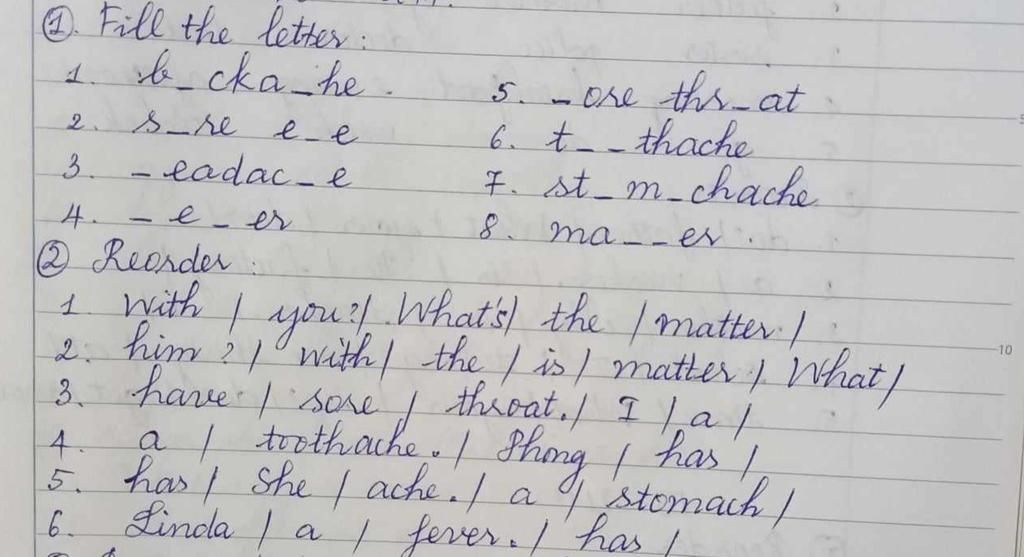 ①. Fill the letter:
1. b_cka_he. 5. _ore thr_at
2. s_re e_e 6. t__thache
3. _eadac_e 7. st_m_chache
4. _e_er 8. ma__er.
② Reorder:
1 With / you?/ What's/ the / matter /
2. him ?/ with/ the / is / matter / What /
3. have / sore / throat./ I / a /
4. a / toothache. / Phong / has /
5. has / She / ache. / a / stomach /
6. Linda / a / fever. / has /